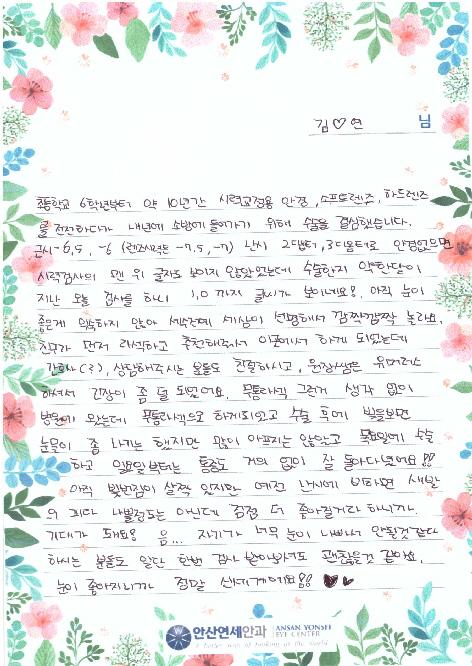 김♡연 님
초등학교 6학년부터 약 10년간 시력교정용 안경, 소프트렌즈, 하드렌즈
를 전전하다가 내년에 소방에 들어가기 위해 수술을 결심했습니다.
근시 -6.5, -6 (렌즈시력은 -7.5, -7) 난시 2단계, 3디옵터로 안경없으면
시력검사의 맨 위 글자도 보이지 않았었는데 수술한지 약한달이
지난 오늘 검사를 하니 1.0까지 글씨가 보이네요? 아직 눈이
좋은게 익숙하지 않아 세수전에 세상이 선명해서 깜짝깜짝 놀라요.
친구가 먼저 라섹하고 추천해주어서 이곳에서 하게 되었는데
간호사(?), 상담해주시는 분들도 친절하시고, 원장쌤은 유머러스
하셔서 긴장이 좀 덜 되었어요. 무통라섹 그런거 생각 없이
병원에 왔는데 무통라섹으로 하게되었고 수술 후에 빛을보면
눈물이 좀 나기는 했지만 많이 아프지는 않았고 목요일에 수술
하고 일요일부터는 통증도 거의 없이 잘 돌아다녔어요!!
아직 빛번짐이 살짝 있지만 예전 난시에 비하면 새발
의 피다 나쁠정도는 아닌데 점점 더 좋아질거다 하시니까
기대가 돼요! 음... 자기가 너무 눈이 나빠서 안될것 같다
하시는 분들도 일단 한번 검사 받아보셔도 괜찮을것 같아요.
눈이 좋아지니까 정말 신세계에요!! ♥♥
안산연세안과 ANSAN YONSEI
EYE CENTER
A better way of looking at the world